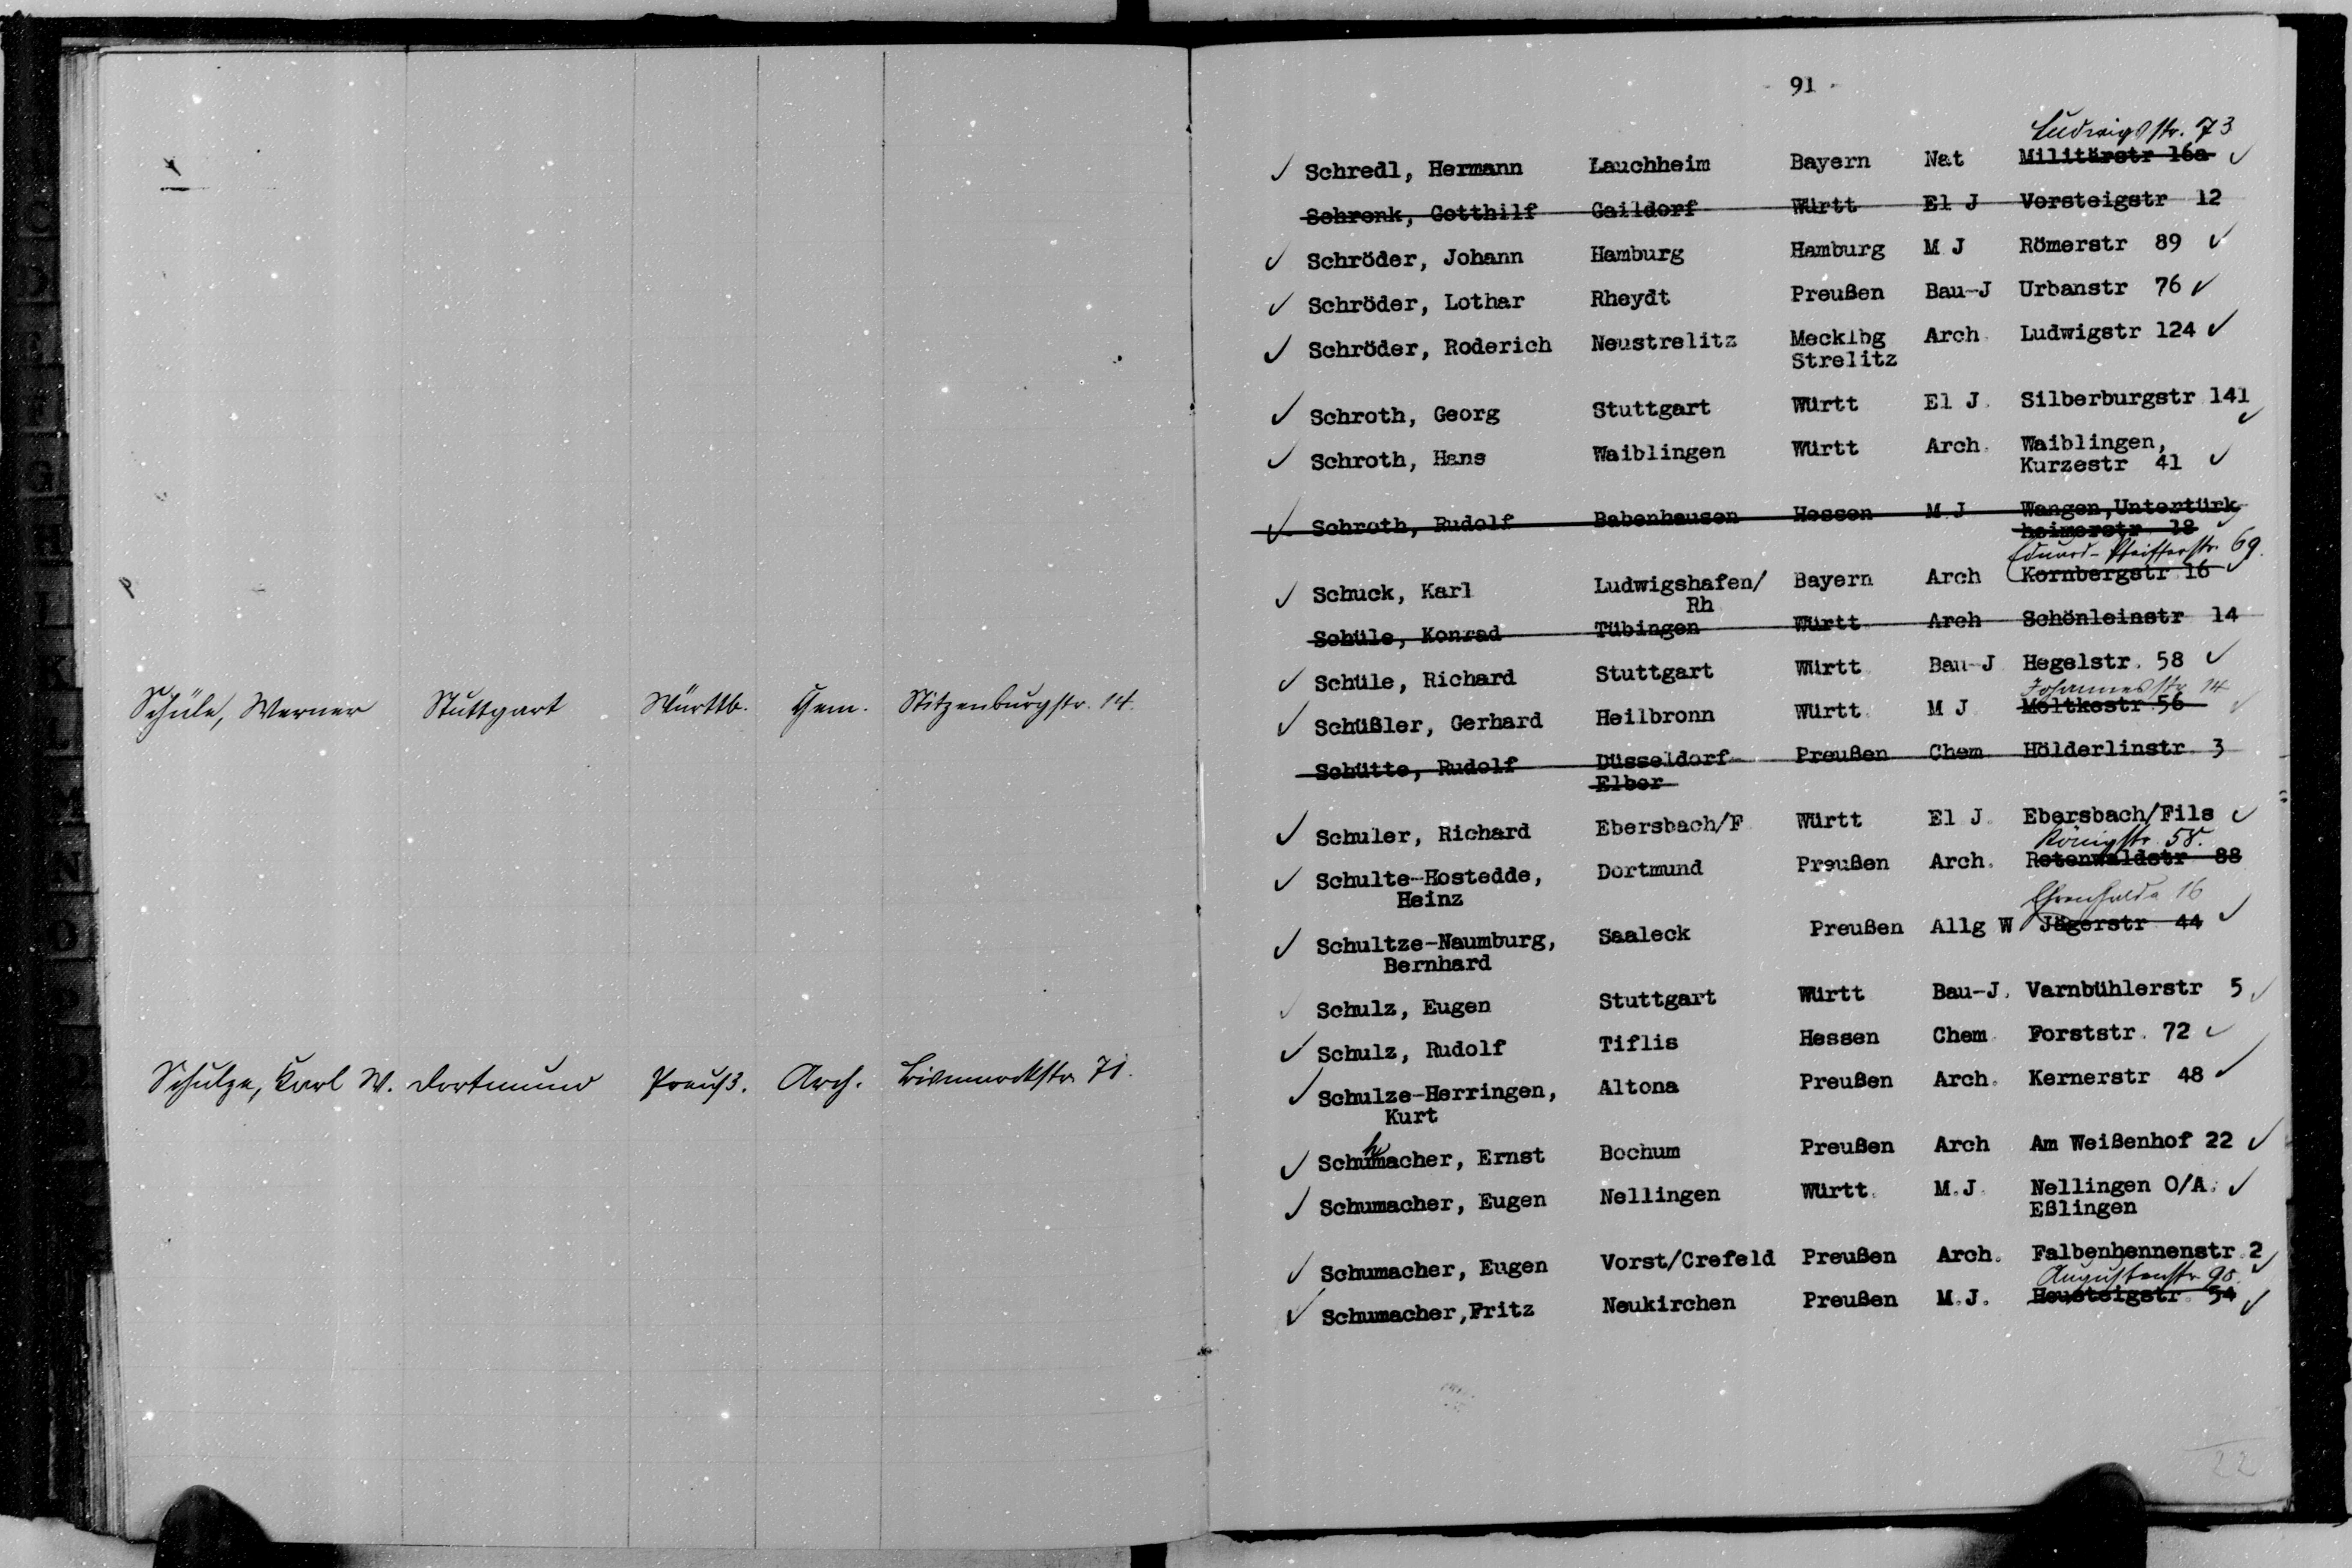 Schüle, Werner Stuttgart Württb. Chem. Stitzenburgstr. 14.
Schulze, Karl W. Dortmund Preuß. Arch. Bismarckstr. 71.
- 91 -
Ludwigstr. 73
Schredl, Hermann Lauchheim Bayern Nat Militärstr 16a
Schrenk, Gotthilf Gaildorf Württ El J Vorsteigstr 12
Schröder, Johann Hamburg Hamburg M J Römerstr 89
Schröder, Lothar Rheydt Preußen Bau-J Urbanstr 76
Schröder, Roderich Neustrelitz Mecklbg Arch. Ludwigstr 124
Strelitz
Schroth, Georg Stuttgart Württ El J. Silberburgstr 141
Schroth, Hans Waiblingen Württ Arch. Waiblingen,
Kurzestr 41
Schroth, Rudolf Babenhausen Hessen M J Wangen,Untertürk
heimerstr 18
Eduard-Pfeifferstr. 69.
Schuck, Karl Ludwigshafen/ Bayern Arch Kornbergstr 16
Rh
Schüle, Konrad Tübingen Württ Arch Schönleinstr 14
Schüle, Richard Stuttgart Württ Bau-J Hegelstr. 58
Johannesstr 14
Schüßler, Gerhard Heilbronn Württ. M J Moltkestr 56
Schütte, Rudolf Düsseldorf- Preußen Chem Hölderlinstr 3
Elber
Schuler, Richard Ebersbach/F Württ El J. Ebersbach/Fils
Königstr. 58.
Schulte-Hostedde, Dortmund Preußen Arch. Rotenwaldstr 88
Heinz
Ehrenhalde 16
Schultze-Naumburg, Saaleck Preußen Allg W Jägerstr 44
Bernhard
Schulz, Eugen Stuttgart Württ Bau-J. Varnbühlerstr 5
Schulz, Rudolf Tiflis Hessen Chem Forststr. 72
Schulze-Herringen, Altona Preußen Arch. Kernerstr 48
Kurt
h
Schumacher, Ernst Bochum Preußen Arch Am Weißenhof 22
Schumacher, Eugen Nellingen Württ. M.J. Nellingen O/A.
Eßlingen
Schumacher, Eugen Vorst/Crefeld Preußen Arch. Falbenhennenstr.2
Augustenstr. 98.
Schumacher,Fritz Neukirchen Preußen M.J. Heusteigstr. 54
22